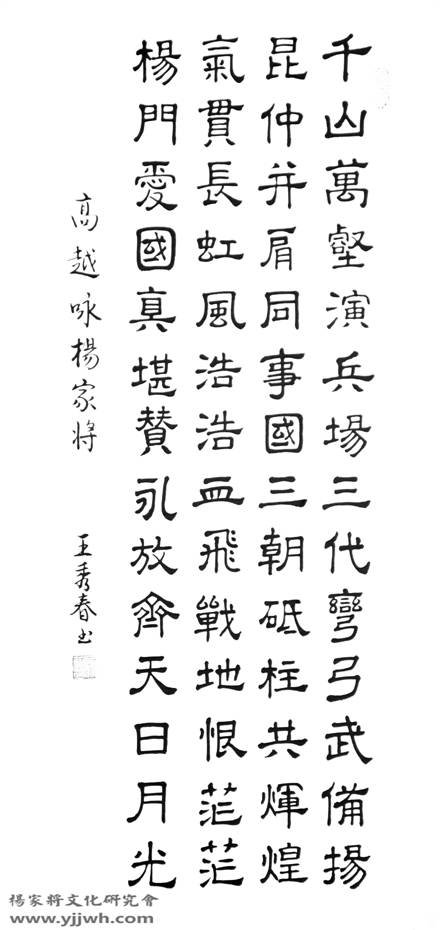 千山萬壑演兵場三代彎弓武備揚
昆仲并肩同事國三朝砥柱共輝煌
氣貫長虹風浩浩血飛戰地恨茫茫
楊門愛國真堪贊永放齊天日月光
高越咏楊家将
王秀春书
楊家將文化研究會
www.yjjwh.com